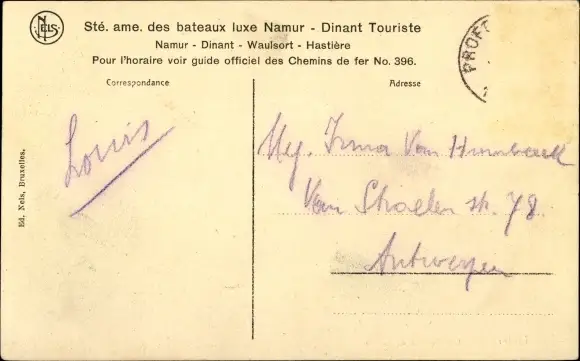 NELS
Sté. ame. des bateaux luxe Namur - Dinant Touriste
Namur - Dinant - Waulsort - Hastière
Pour l'horaire voir guide officiel des Chemins de fer No. 396.
Correspondance
Adresse
PROF
Louis
Mej. Irma Van
Van st. 78
Antwerpen
Ed. Nels, Bruxelles.